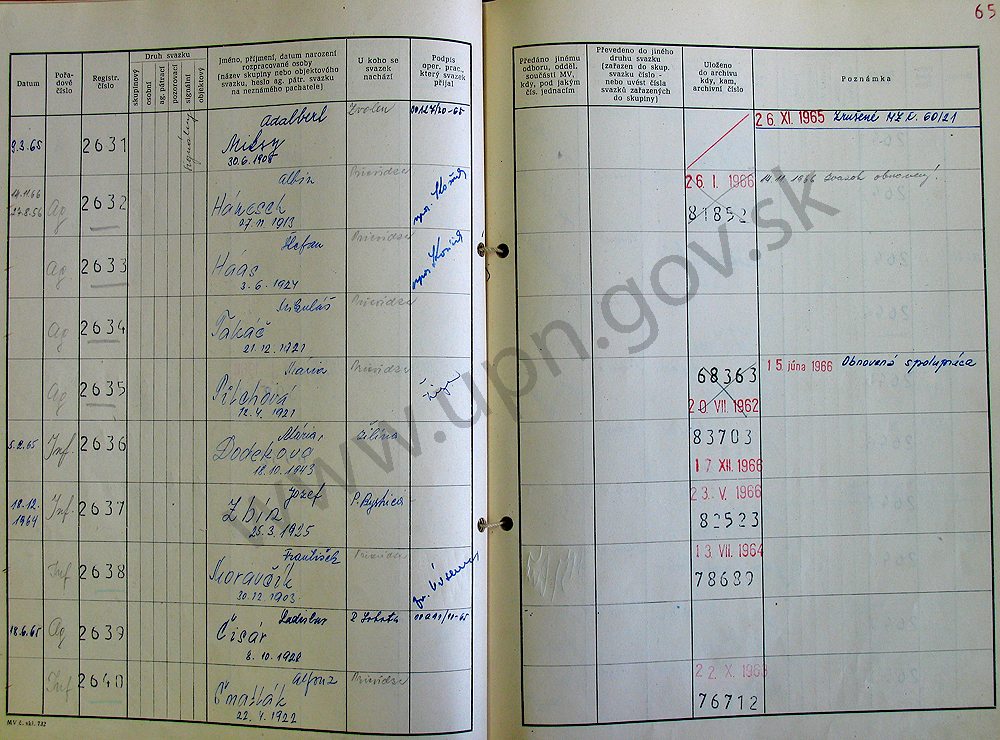 65
Datum
Pořa-
dové
číslo
Registr.
číslo
Druh svazku
skupinový
osobní
ag. pátrací
pozorovací
signální
objektový
Jméno, příjmení, datum narození
rozpracované osoby
(název skupiny nebo objektového
svazku, heslo ag. pátr. svazku
na neznámého pachatele)
U koho se
svazek
nachází
Podpis
oper. prac.,
který svazek
přijal
Předáno jinému
odboru, odděl.
součásti MV,
kdy, pod jakým
čís. jednacím
Převedeno do jiného
druhu svazku
(zařazen do skup.
svazku číslo -
nebo uvést čísla
svazků zařazených
do skupiny)
Uloženo
do archivu
kdy, kam,
archivní číslo
Poznámka
Adalbert
Zvolen
2 6. XI. 1965 Zrušené
8.3.65
2631
30.6.1908
Albín
Prievidza
2 6. I. 1966
14.11.1966 Svazok obnovený!
14.11.66
Ag
2632
27.11.1913
81852
Štefan
Prievidza
Ag
2633
Haás
3.6.1924
Mikuláš
Prievidza
Ag
2634
Takáč
21.12.1921
Mária
Prievidza
68363
1 5. júna 1966 Obnovená spolupráca
Ag
2635
Pilchová
12.4.1921
2 0. VII. 1962
Mária
Žilina
5.2.65
Inf
2636
18.10.1943
83703
1 7. XII. 1966
Jozef
P. Bystrica
2 3. V. 1966
18.12.
1964
Inf.
2637
Zbín
25.3.1925
82523
František
Prievidza
1 3. VII. 1964
Inf
2638
Moravčík
30.12.1903
78689
Ladislav
R. Sobota
18.6.65
Ag
2639
Čisár
8.10.1928
Alfonz
Prievidza
Inf
2640
Čmatlák
22.4.1922
76712
MV č. skl. 732
www.upn.gov.sk